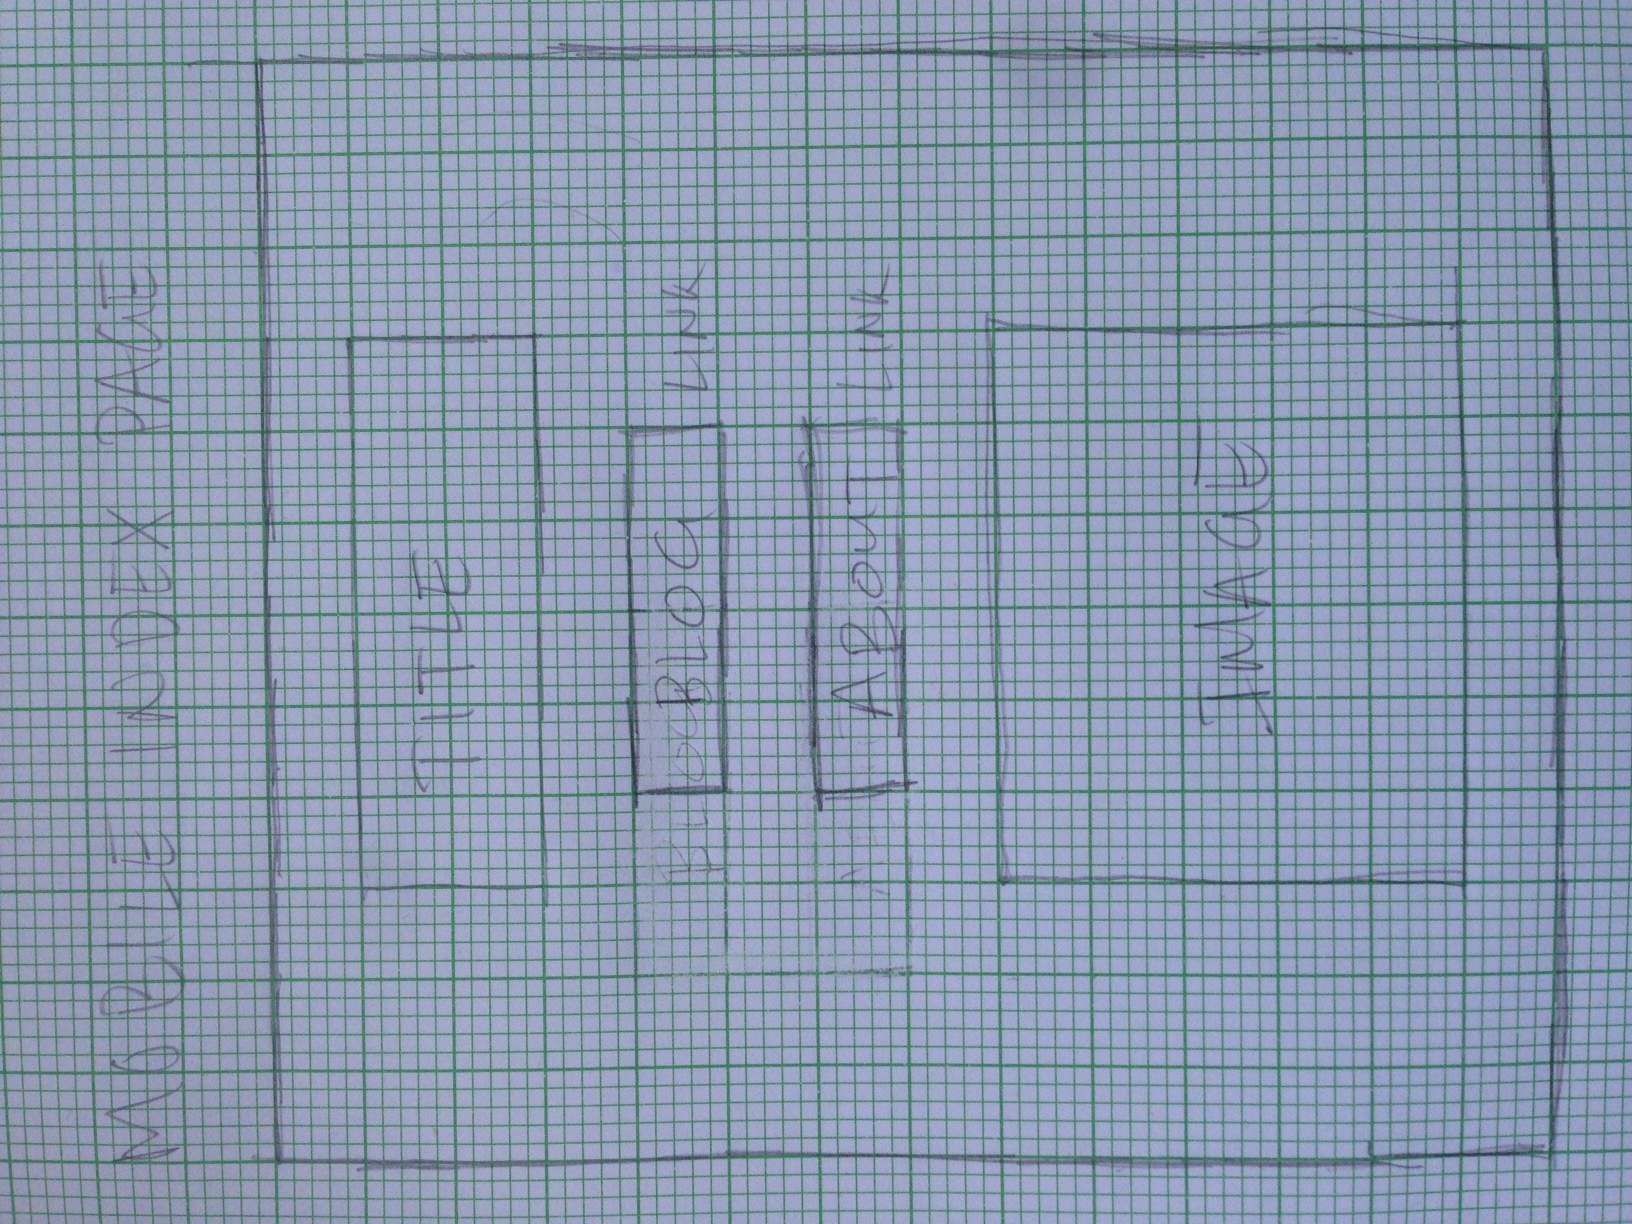 MOBILE INDEX PAGE
TITLE
BLOG LINK
ABOUT LINK
IMAGE